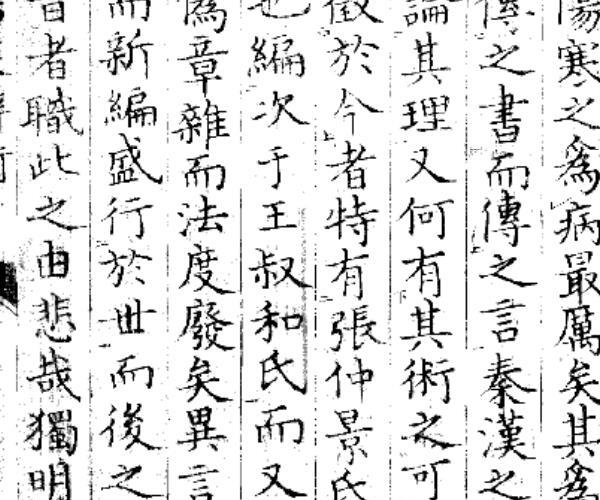 傷寒之為病最厲矣其為
之書而傳之言秦漢之
論其理又何有其術之可
徵於今者特有張仲景氏
也編次于王叔和氏而又
為章雜而法度廢矣異言
而新編盛行於世而後之
昔者職此之由悲哉獨明